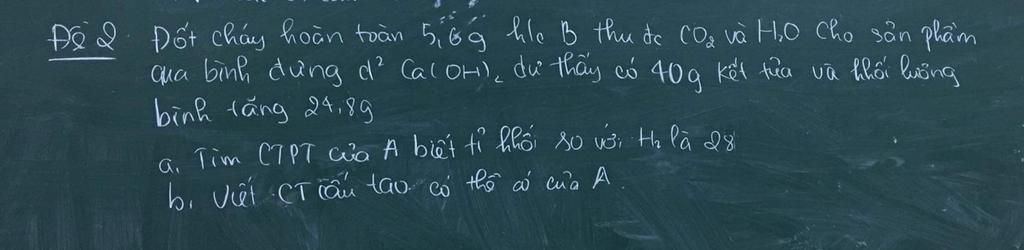 Đề 2 Đốt cháy hoàn toàn 5,6g h/c B thu đc CO₂ và H₂O Cho sản phẩm
qua bình đựng d² Ca(OH)₂ dư thấy có 40g kết tủa và khối lượng
bình tăng 24,8g
a. Tìm CTPT của A biết tỉ khối so với H₂ là 28
b. Viết CT cấu tạo có thể có của A.